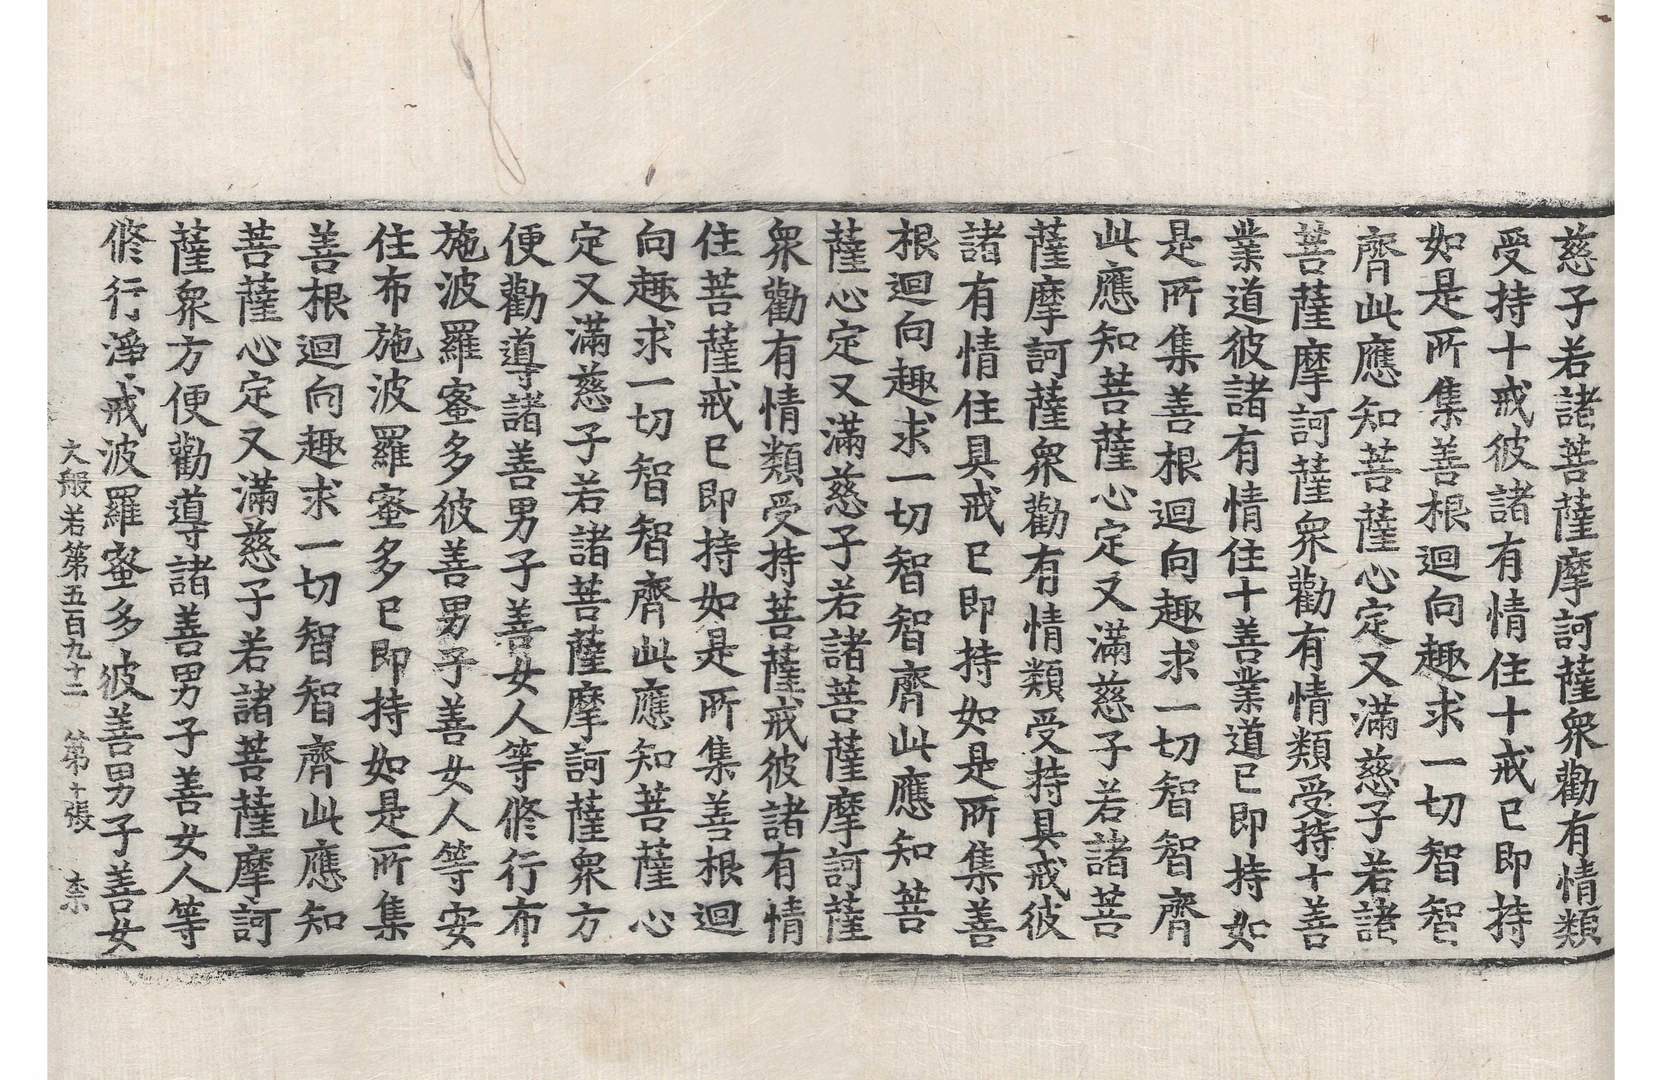 慈子若諸菩薩摩訶薩衆勸有情類
受持十戒彼諸有情住十戒已即持
如是所集善根迴向趣求一切智智
齊此應知菩薩心定又滿慈子若諸
菩薩摩訶薩衆勸有情類受持十善
業道彼諸有情住十善業道已即持如
是所集善根迴向趣求一切智智齊
此應知菩薩心定又滿慈子若諸菩
薩摩訶薩衆勸有情類受持具戒彼
諸有情住具戒已即持如是所集善
根迴向趣求一切智智齊此應知菩
薩心定又滿慈子若諸菩薩摩訶薩
衆勸有情類受持菩薩戒彼諸有情
住菩薩戒已即持如是所集善根迴
向趣求一切智智齊此應知菩薩心
定又滿慈子若諸菩薩摩訶薩衆方
便勸導諸善男子善女人等修行布
施波羅蜜多彼善男子善女人等安
住布施波羅蜜多已即持如是所集
善根迴向趣求一切智智齊此應知
菩薩心定又滿慈子若諸菩薩摩訶
薩衆方便勸導諸善男子善女人等
修行淨戒波羅蜜多彼善男子善女
大般若第五百九十二 第十張 李